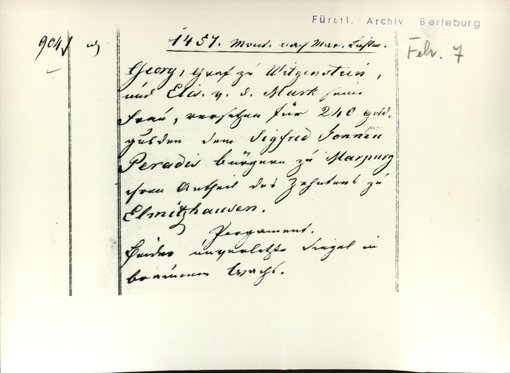 Fürstl. Archiv Berleburg
904.
1457. Mont. nach Mar. Lichtm.
Febr. 7
Georg, Graf zu Witgenstein,
und Elis. v. d. Mark seine
Frau, versetzen für 240 gold-
gulden dem Sigfrid
Peradis bürgern zu Marpurg
ihren Antheil des Zehntens zu
Elmitzhausen.
Pergament.
Beider unverletzte Siegel in
braunem Wachs.